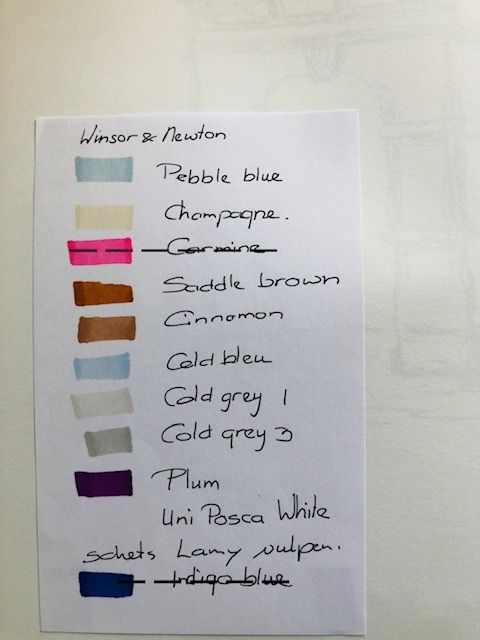 Winsor & Newton
Pebble blue
Champagne.
Carmine
Saddle brown
Cinnamon
Cold bleu
Cold grey 1
Cold grey 3
Plum
Uni Posca White
schets Lamy vulpen.
Indigo blue